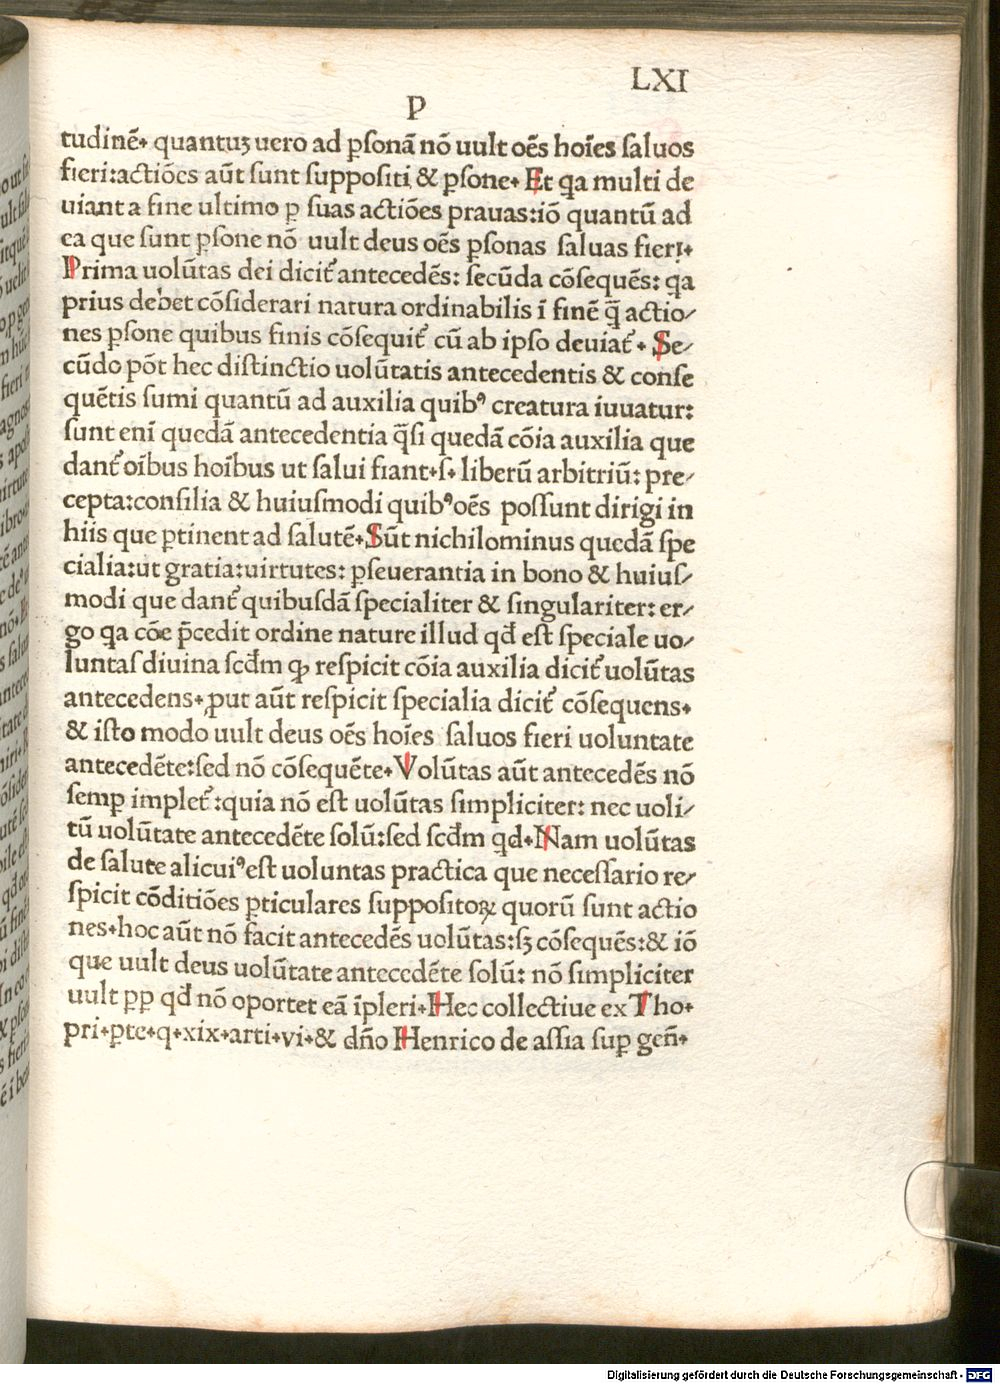 LXI
P
tudinẽ. quantuꝫ uero ad ꝑsonã nõ uult oẽs hoĩes saluos
fieri:actiões aũt sunt suppositi & ꝑsone. Et qa multi de
uiant a fine ultimo ꝑ suas actiões prauas:iõ quantũ ad
ea que sunt ꝑsone nõ uult deus oẽs ꝑsonas saluas fieri.
Prima uolũtas dei dicit᷑ antecedẽs: secũda cõsequẽs: qa
prius debet cõsiderari natura ordinabilis ĩ finẽ q̃ actio/
nes ꝑsone quibus finis cõsequit᷑ cũ ab ipso deuiat᷑. Se/
cũdo põt hec distinctio uolũtatis antecedentis & conse
quẽtis sumi quantũ ad auxilia quibꝰ creatura iuuatur:
sunt enĩ quedã antecedentia q̃si quedã cõia auxilia que
dant᷑ oĩbus hoĩbus ut salui fiant.s. liberũ arbitriũ: pre/
cepta:consilia & huiusmodi quibꝰ oẽs possunt dirigi in
hiis que ꝑtinent ad salutẽ. Sũt nichilominus quedã spe
cialia:ut gratia:uirtutes: ꝑseuerantia in bono & huius/
modi que dant᷑ quibusdã specialiter & singulariter: er/
go qa cõe p̃cedit ordine nature illud qđ est speciale uo/
luntas diuina scđm ꝙ respicit cõia auxilia dicit᷑ uolũtas
antecedens. ꝓut aũt respicit specialia dicit᷑ cõsequens.
& isto modo uult deus oẽs hoĩes saluos fieri uoluntate
antecedẽte:sed nõ cõsequẽte. Volũtas aũt antecedẽs nõ
semꝑ implet᷑:quia nõ est uolũtas simpliciter: nec uoli/
tũ uolũtate antecedẽte solũ:sed scđm qd. Nam uolũtas
de salute alicuiꝰ est uoluntas practica que necessario re/
spicit cõditiões ꝑticulares suppositoꝝ quorũ sunt actio
nes.hoc aũt nõ facit antecedẽs uolũtas:sꝫ cõsequẽs:& iõ
que uult deus uolũtate antecedẽte solũ: nõ simpliciter
uult ꝑp qđ nõ oportet eã ĩpleri. Hec collectiue ex Tho.
pri.ꝑte.q.xix.arti.vi.& dño Henrico de assia suꝑ geñ.
Digitalisierung gefördert durch die Deutsche Forschungsgemeinschaft - DFG